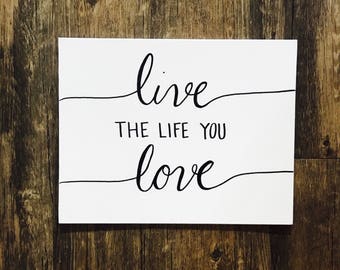 live
THE LIFE YOU
love